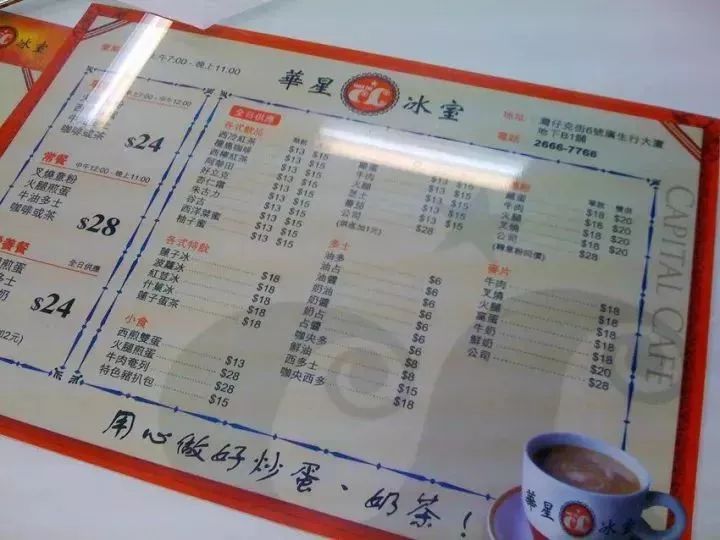 冰室
上午7:00 - 晚上11:00
華星 冰室
地址 灣仔克街6號廣生行大廈
地下B1舖
電話 2666-7766
CAPITAL CAFE
火腿
咖啡或茶
$24
常餐
中午12:00 - 晚上11:00
叉燒意粉
火腿煎蛋
牛油多士
咖啡或茶
$28
營養餐
全日供應
$24
全日供應
各式飲品
西冷紅茶 $13 $15
$13 $15
西檸紅茶 $13 $15
阿華田 $13 $15
好立克 $13 $15
杏仁霜 $13 $15
朱古力 $13 $15
谷古 $13 $15
西洋菜蜜 $13 $15
柚子蜜 $13 $15
各式特飲
蓮子冰 $18
菠蘿冰 $18
紅荳冰 $18
什菓冰 $18
蓮子蛋茶 $18
小食
西煎雙蛋 $13
火腿煎蛋 $28
牛肉奄列 $28
特色豬扒包 $15
牛肉
火腿
芝士
蕃茄
公司 $28
(烘底加1元)
多士
油多 $6
油占 $6
油醬 $6
奶油 $6
奶醬 $6
奶占 $6
占醬 $6
咖央多 $8
鮮油 $8
西多士 $15
咖央西多 $18
牛肉 $18 $20
火腿 $18 $20
叉燒 $18 $20
公司 $28
(轉意粉同價)
麥片
牛肉 $18
叉燒 $18
火腿 $18
窩蛋 $18
牛奶 $18
鮮奶 $20
公司 $28
用心做好炒蛋、奶茶!
華星 冰室